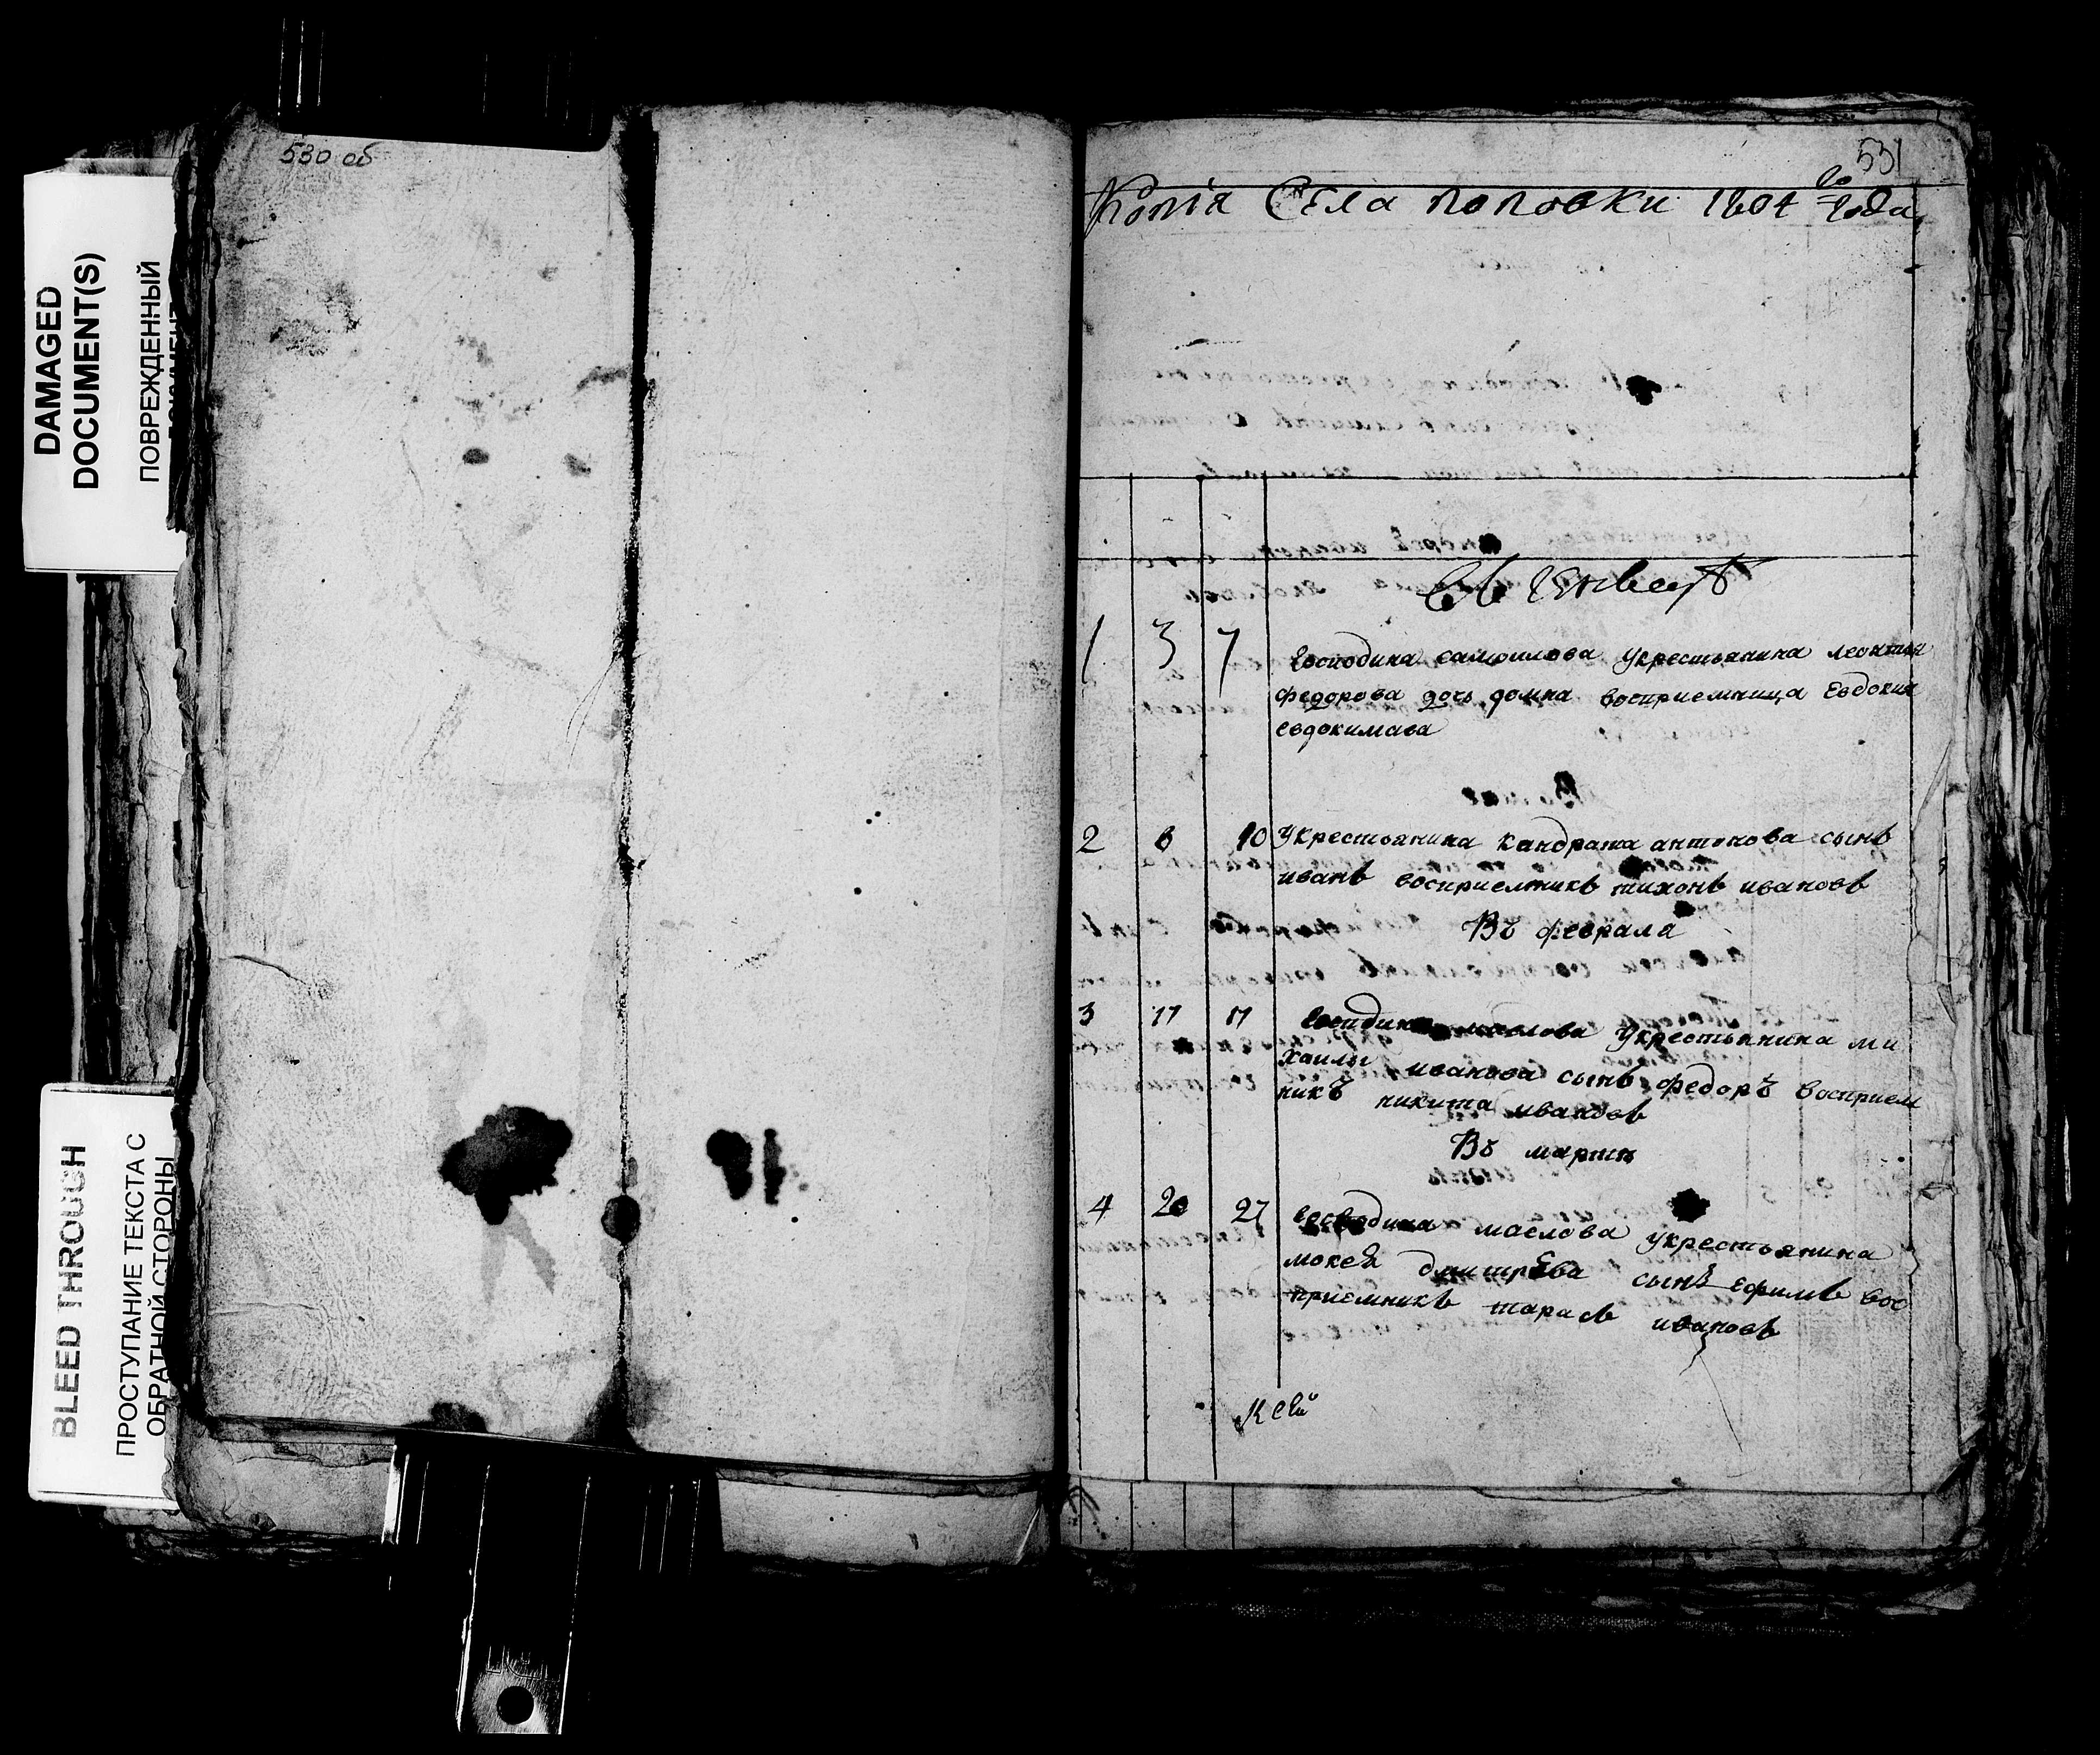 DAMAGED
DOCUMENT(S)
ПОВРЕЖДЕННЫЙ
BLEED THROUGH
ПРОСТУПАНИЕ ТЕКСТА С
ОБРАТНОЙ СТОРОНЫ
530 об
531
Копiя Села поповки 1804 го года
1 3 7 Господина самоилова укрестьянина леонтья
федорова дочь домна восприемница Евдокия
евдокимава
2 8 10 укрестьянина кандрата антонова сынъ
иванъ восприемникъ тихонъ ивановъ
Въ февраля
3 17 17 маслова укрестьянина ми
хаилы иванова сынъ федоръ восприем
никъ никита ивановъ
Въ марте
4 20 27 господина маслова укрестьянина
мокея дмитрЕва сынъ ефимъ вос
приемникъ тарасъ ивановъ